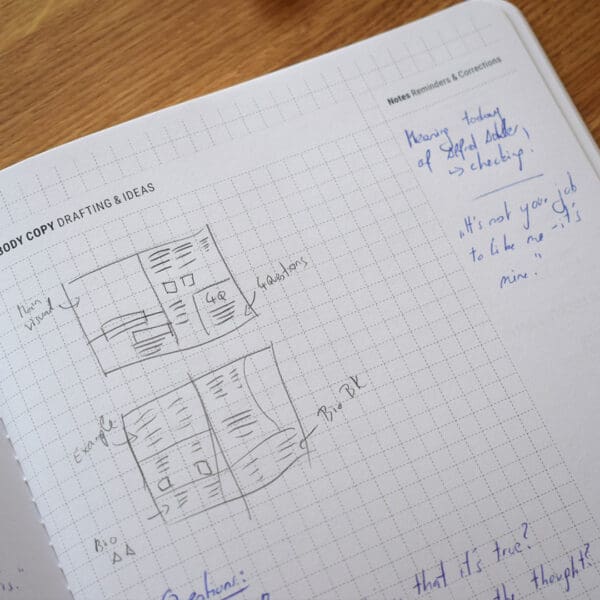 Notes Reminders & Corrections
BODY COPY DRAFTING & IDEAS
Meaning today
of Alfred Adler,
↳ checking.
"It's not your job
to like me - it's
mine."
Main
visual
4Q
4 Questions
Example
Bio BK
Bio
Questions:
that it's true?
the thought?
s."